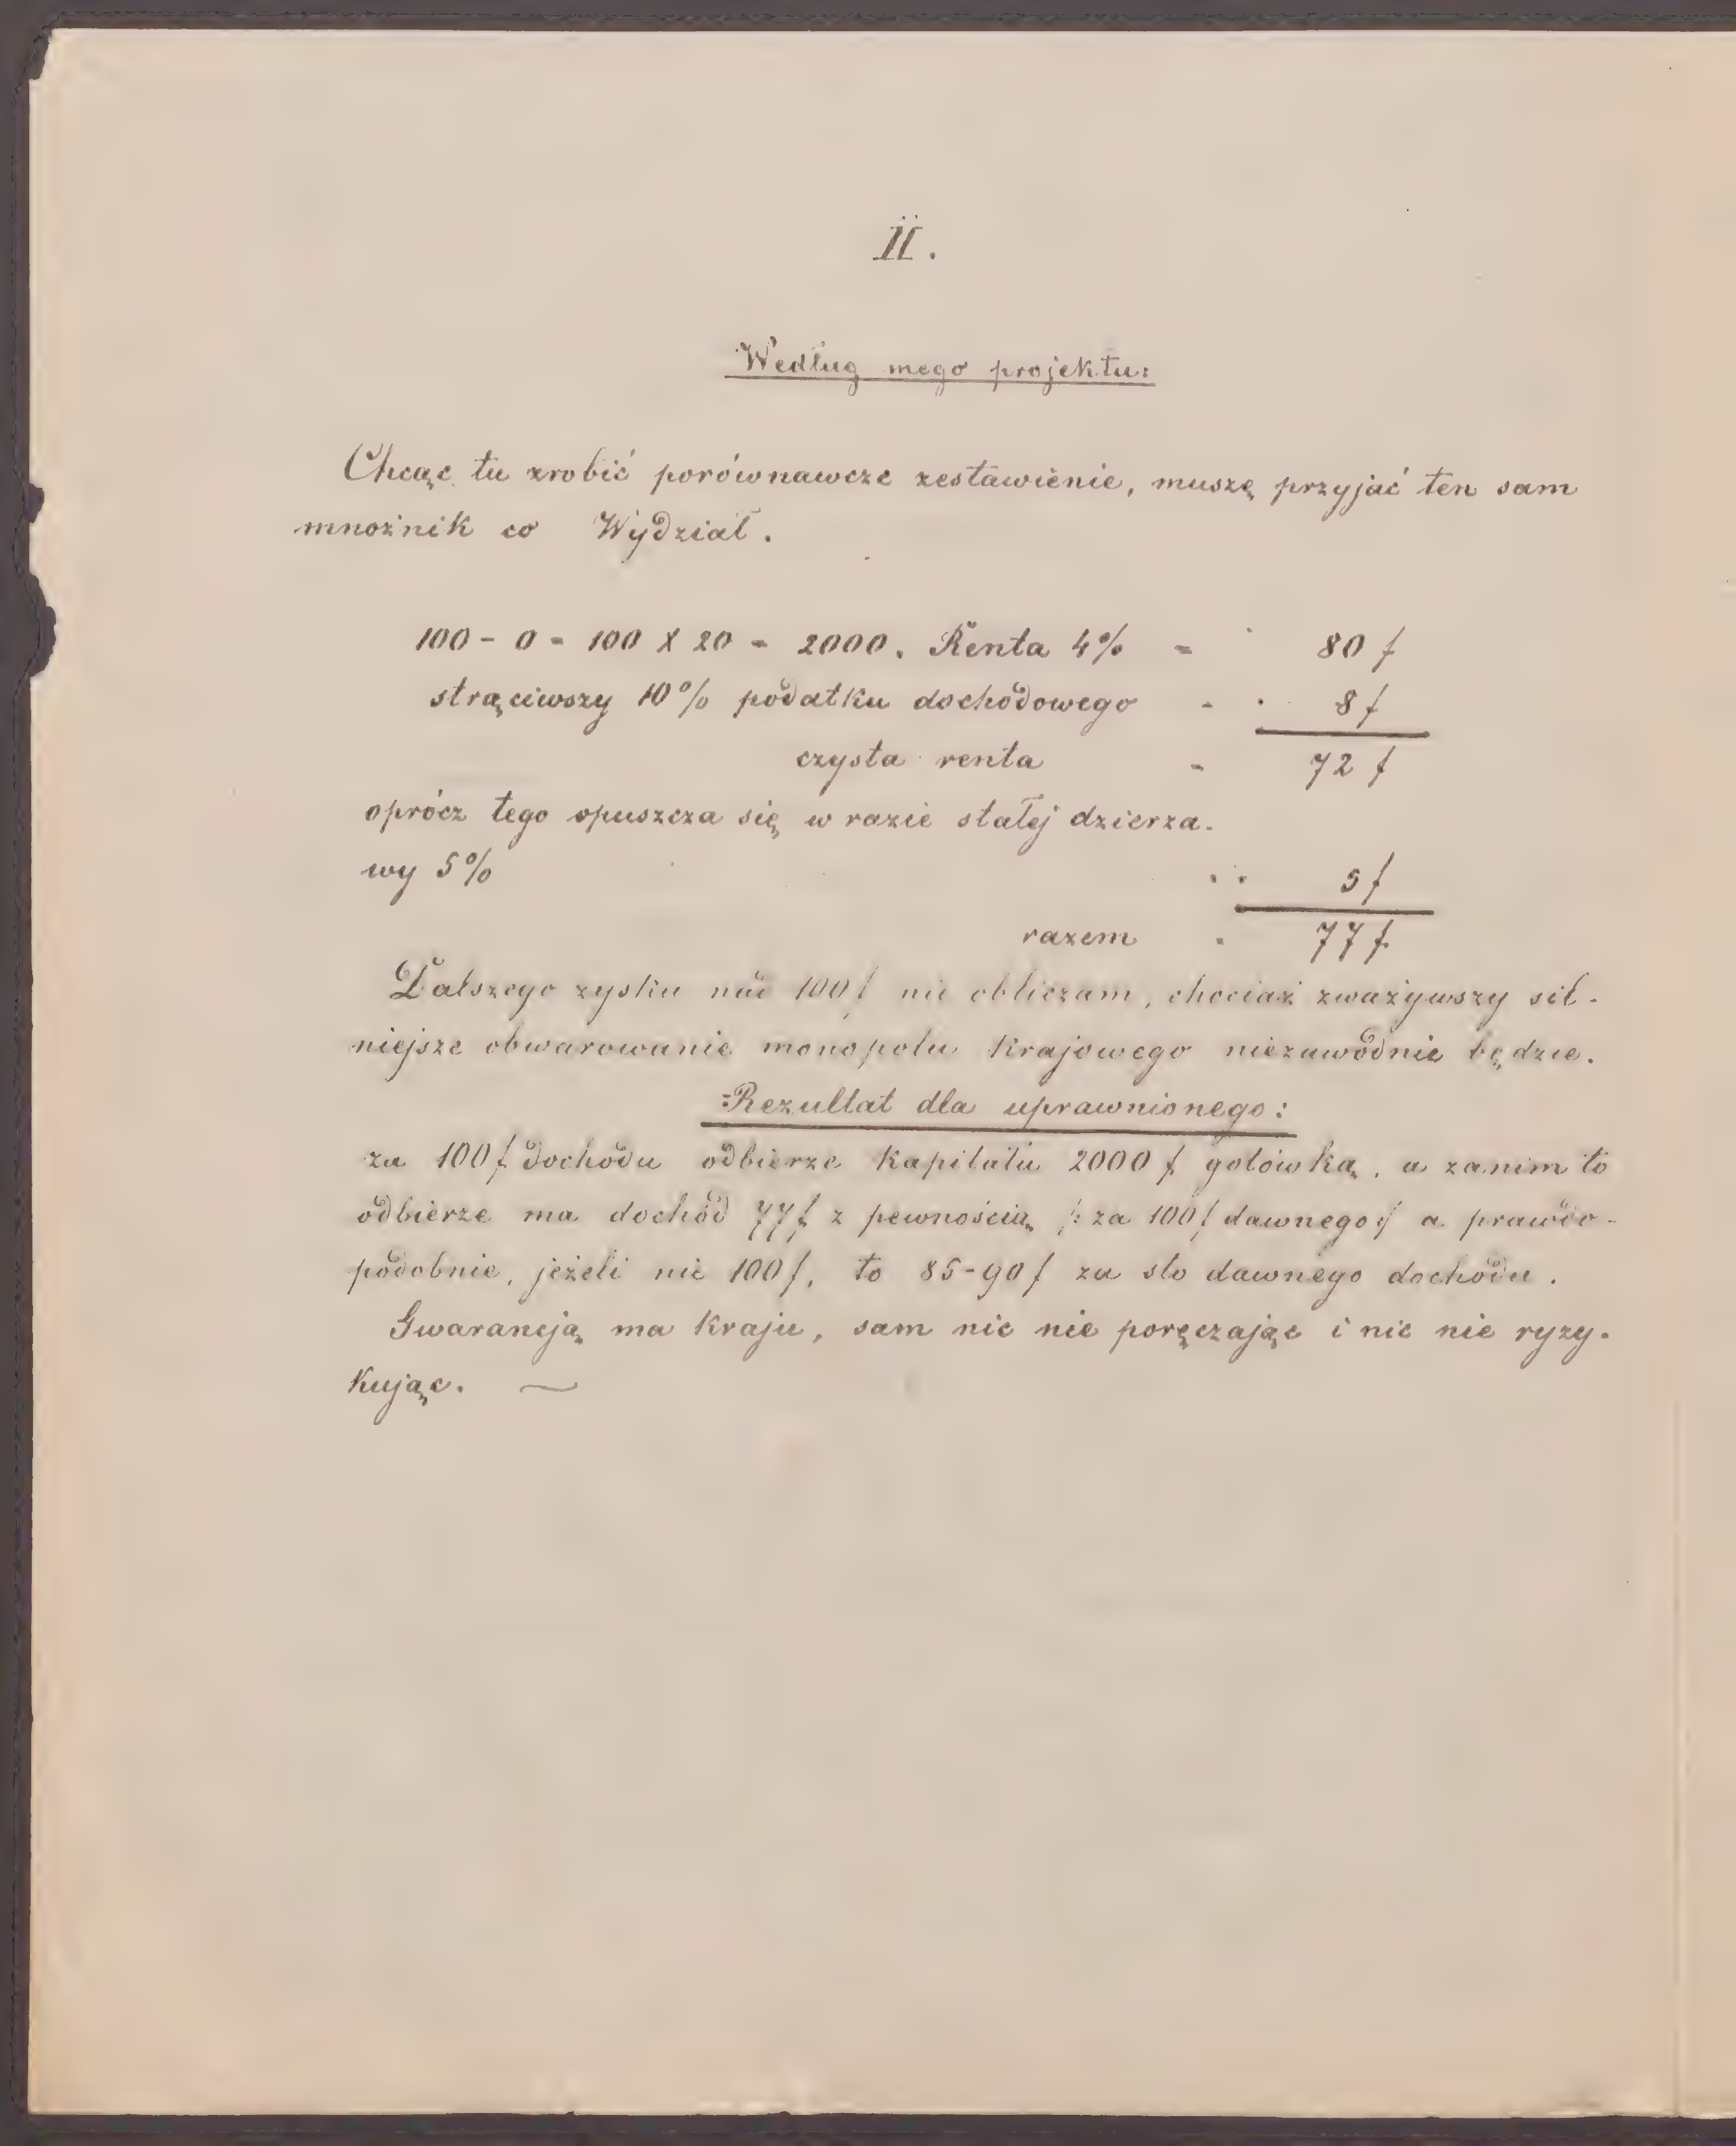 II.
Według mego projektu:
Chcąc tu zrobić porównawcze zestawienie, muszę przyjąć ten sam
mnożnik co Wydział.
100 - 0 = 100 X 20 = 2000. Renta 4% = 80 f
strąciwszy 10% podatku dochodowego - . 8 f
czysta renta - 72 f
oprócz tego opuszcza się w razie stałej dzierza-
wy 5% . . 5 f
razem . 77 f.
Dalszego zysku nad 100 f nie obliczam, chociaż zważywszy sil-
niejsze obwarowanie monopolu krajowego niezawodnie będzie.
Rezultat dla uprawnionego:
za 100 f. dochodu odbierze kapitału 2000 f. gotówką, a zanim to
odbierze ma dochód 77 f. z pewnością /: za 100 f dawnego :/ a prawdo-
podobnie, jeżeli nie 100 f, to 85-90 f za sto dawnego dochodu.
Gwarancją ma kraju, sam nic nie poręczając i nic nie ryzy-
kując. —